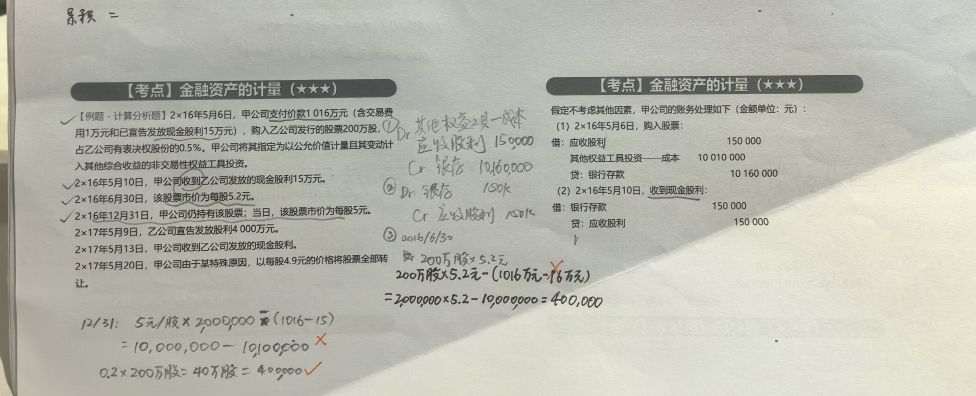 累积 =
【考点】金融资产的计量(★★★)
【例题-计算分析题】2×16年5月6日,甲公司支付价款1 016万元(含交易费
用1万元和已宣告发放现金股利15万元),购入乙公司发行的股票200万股,
占乙公司有表决权股份的0.5%。甲公司将其指定为以公允价值计量且其变动计
入其他综合收益的非交易性权益工具投资。
2×16年5月10日,甲公司收到乙公司发放的现金股利15万元。
2×16年6月30日,该股票市价为每股5.2元。
2×16年12月31日,甲公司仍持有该股票;当日,该股票市价为每股5元。
2×17年5月9日,乙公司宣告发放股利4 000万元。
2×17年5月13日,甲公司收到乙公司发放的现金股利。
2×17年5月20日,甲公司由于某特殊原因,以每股4.9元的价格将股票全部转
让。
① Dr 其他权益工具—成本
应收股利 150,000
Cr 银存 10,160,000
② Dr 银存 150k
Cr 应收股利 150k
③ 2016/6/30
200万股×5.2元
200万股×5.2元-(1016万元-16万元)
=2,000,000×5.2-10,000,000=400,000
12/31: 5元/股×2,000,000-(1016-15)
=10,000,000-10,100,000 ×
0.2×200万股=40万股=400,000 ✓
【考点】金融资产的计量(★★★)
假定不考虑其他因素,甲公司的账务处理如下(金额单位:元):
(1)2×16年5月6日,购入股票:
借:应收股利 150 000
其他权益工具投资——成本 10 010 000
贷:银行存款 10 160 000
(2)2×16年5月10日,收到现金股利:
借:银行存款 150 000
贷:应收股利 150 000